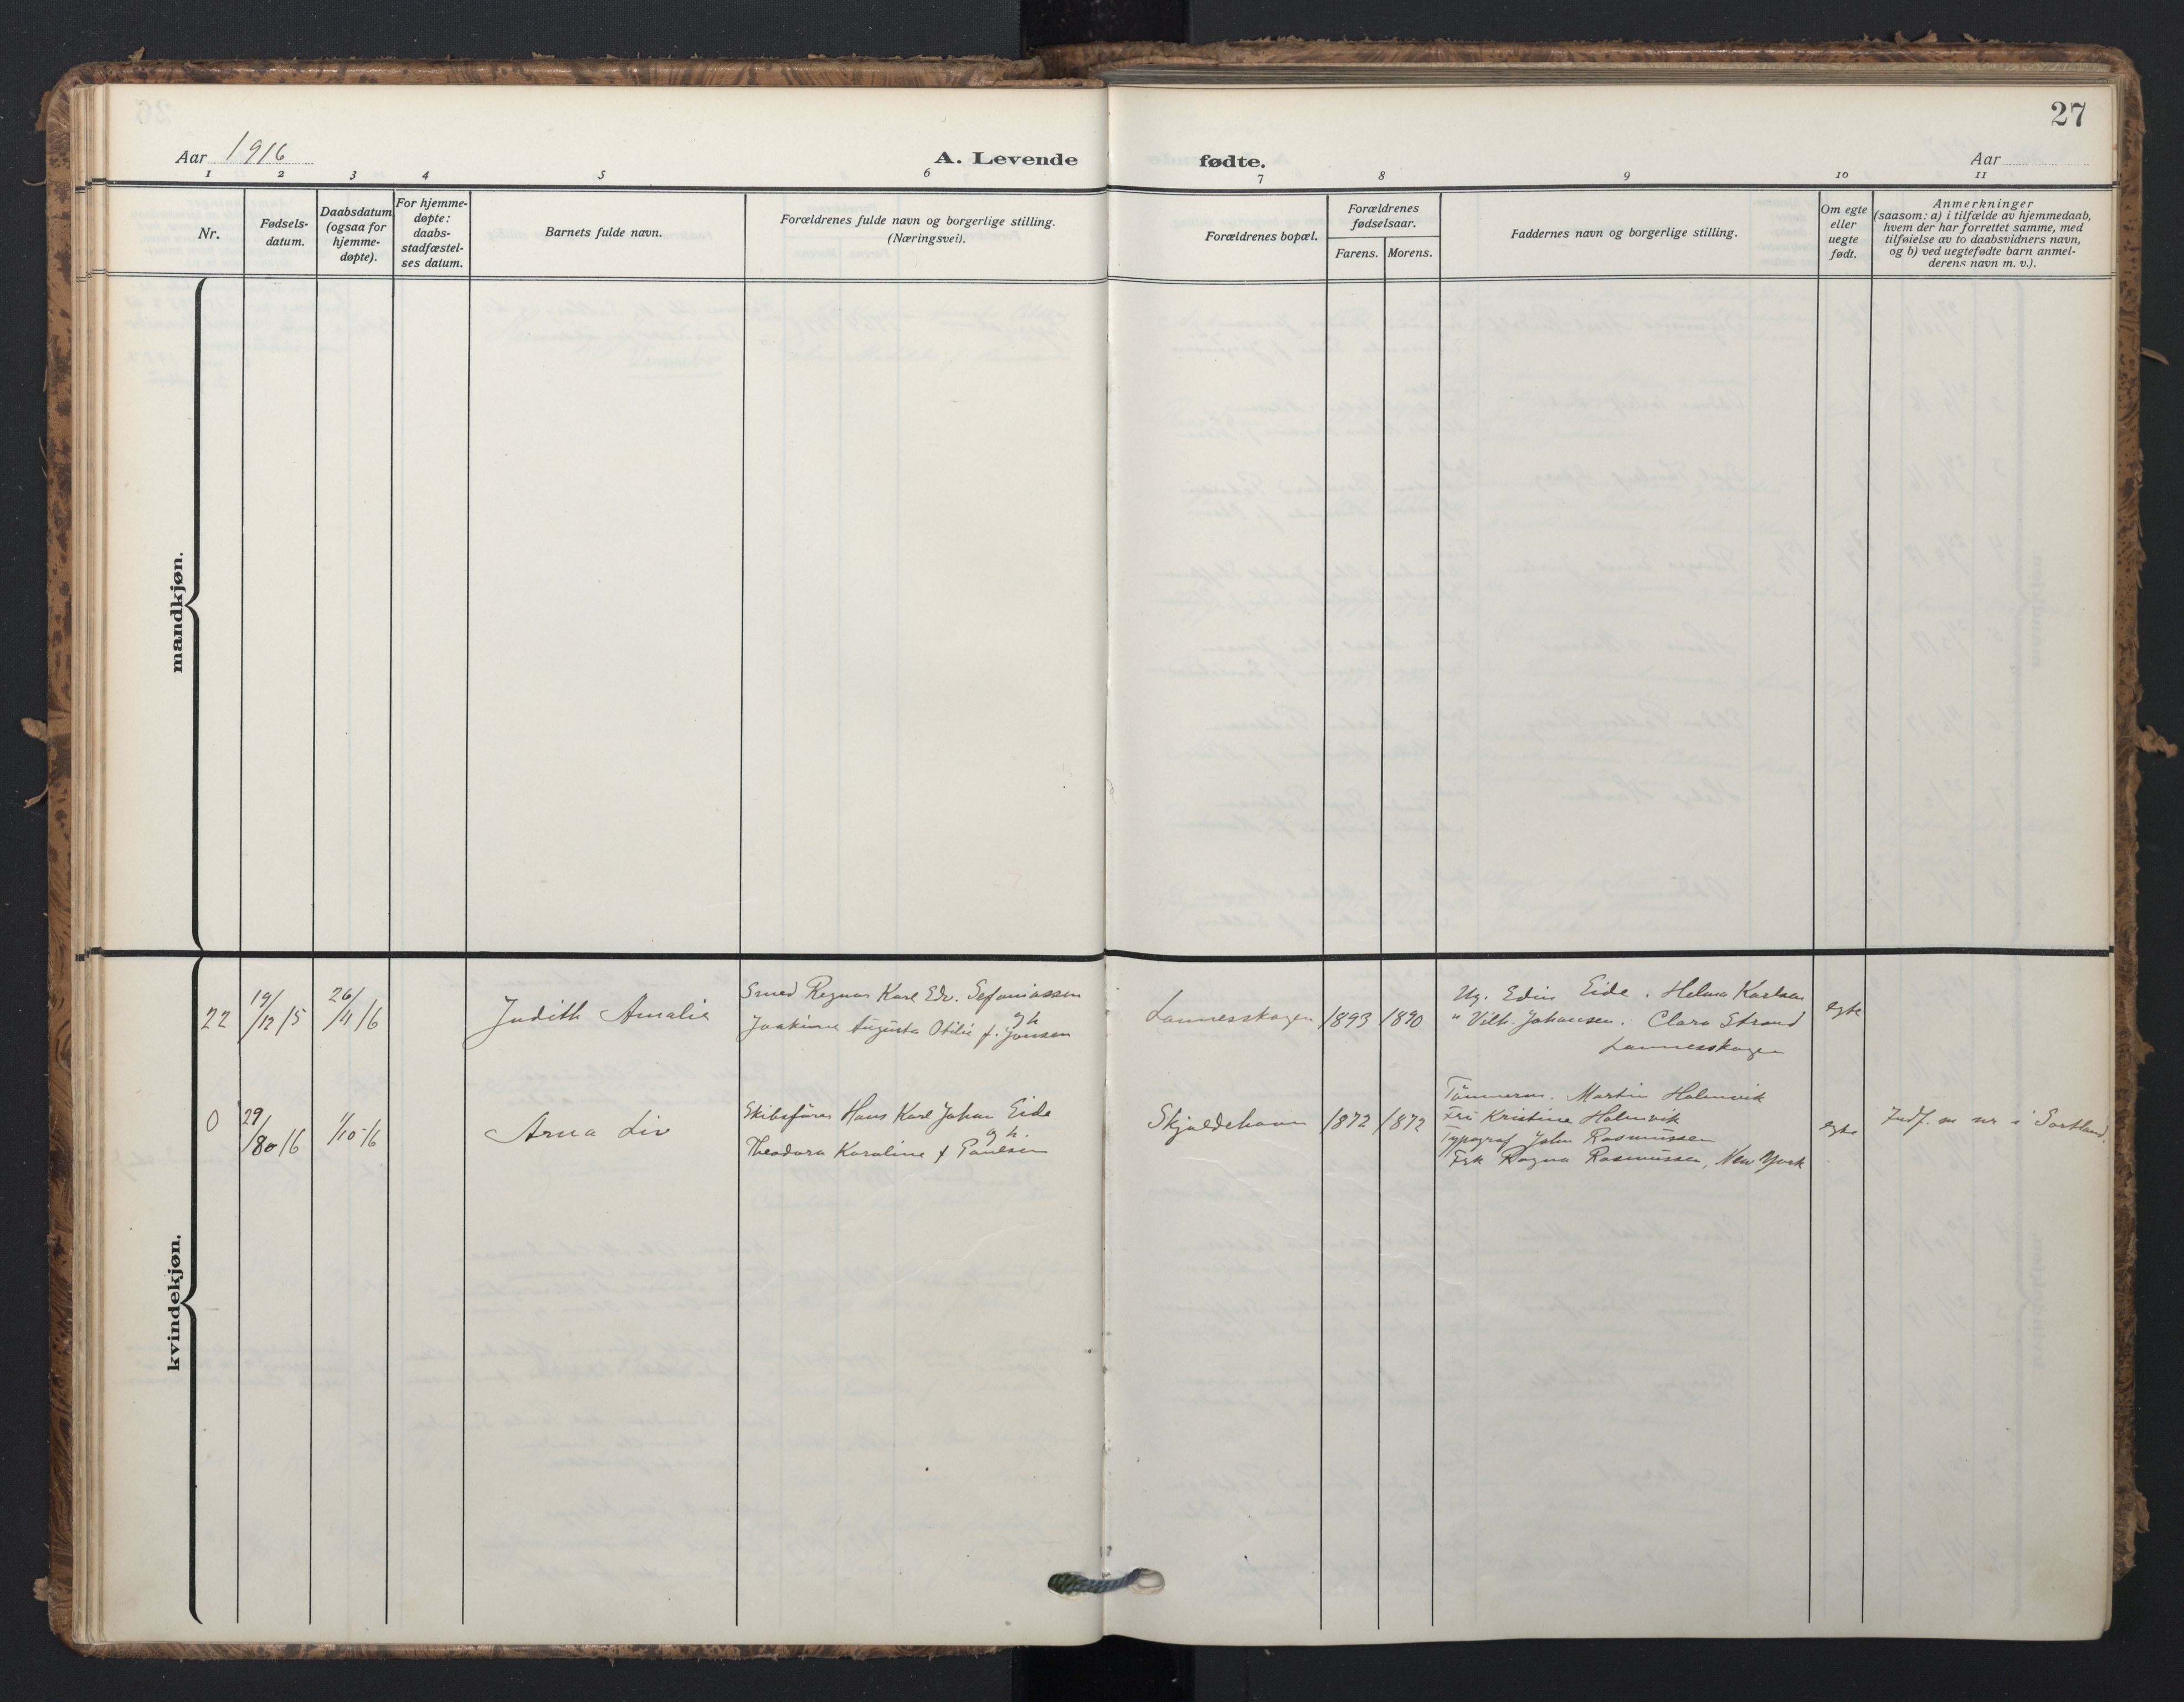 27
Aar 1916
A. Levende
fødte.
Aar
1 2 3 4 5 6 7 8 9 10 11
Nr.
Fødsels-
datum.
Daabsdatum
(ogsaa for
hjemme-
døpte).
For hjemme-
døpte:
daabs-
stadfæstel-
ses datum.
Barnets fulde navn.
Forældrenes fulde navn og borgerlige stilling.
(Næringsvei).
Forældrenes bopæl.
Forældrenes
fødselsaar.
Farens. Morens.
Faddernes navn og borgerlige stilling.
Om egte
eller
uegte
født.
Anmerkninger
(saasom: a) i tilfælde av hjemmedaab,
hvem der har forrettet samme, med
tilføielse av to daabsvidners navn,
og b) ved uegtefødte barn anmel-
derens navn m. v.).
mandkjøn.
kvindekjøn.
22
19/12 15
26/4 16
Judith Amalie
Smed Regnor Karl Edv. Sefaniassen
og h
Joakime Augusta Otilie f. Jonsen
Lannesskogen
1893
1890
Ug. Edin Eide. Helma Karlsen
" Vilh. Johansen. Clara Strand
Lannesskogen
egte
0
29/8 16
1/10 16
Arna Liv
Skibsfører Hans Karl Johan Eide
og h.
Theodora Karoline f Paulsen
Skjoldehavn
1872
1872
Tømmerm. Martin Holmvik
Fru Kristine Holmvik
Typograf John Rasmussen
Frk Ragna Rasmussen, New York
egte
Indf. m nr i Sortland.